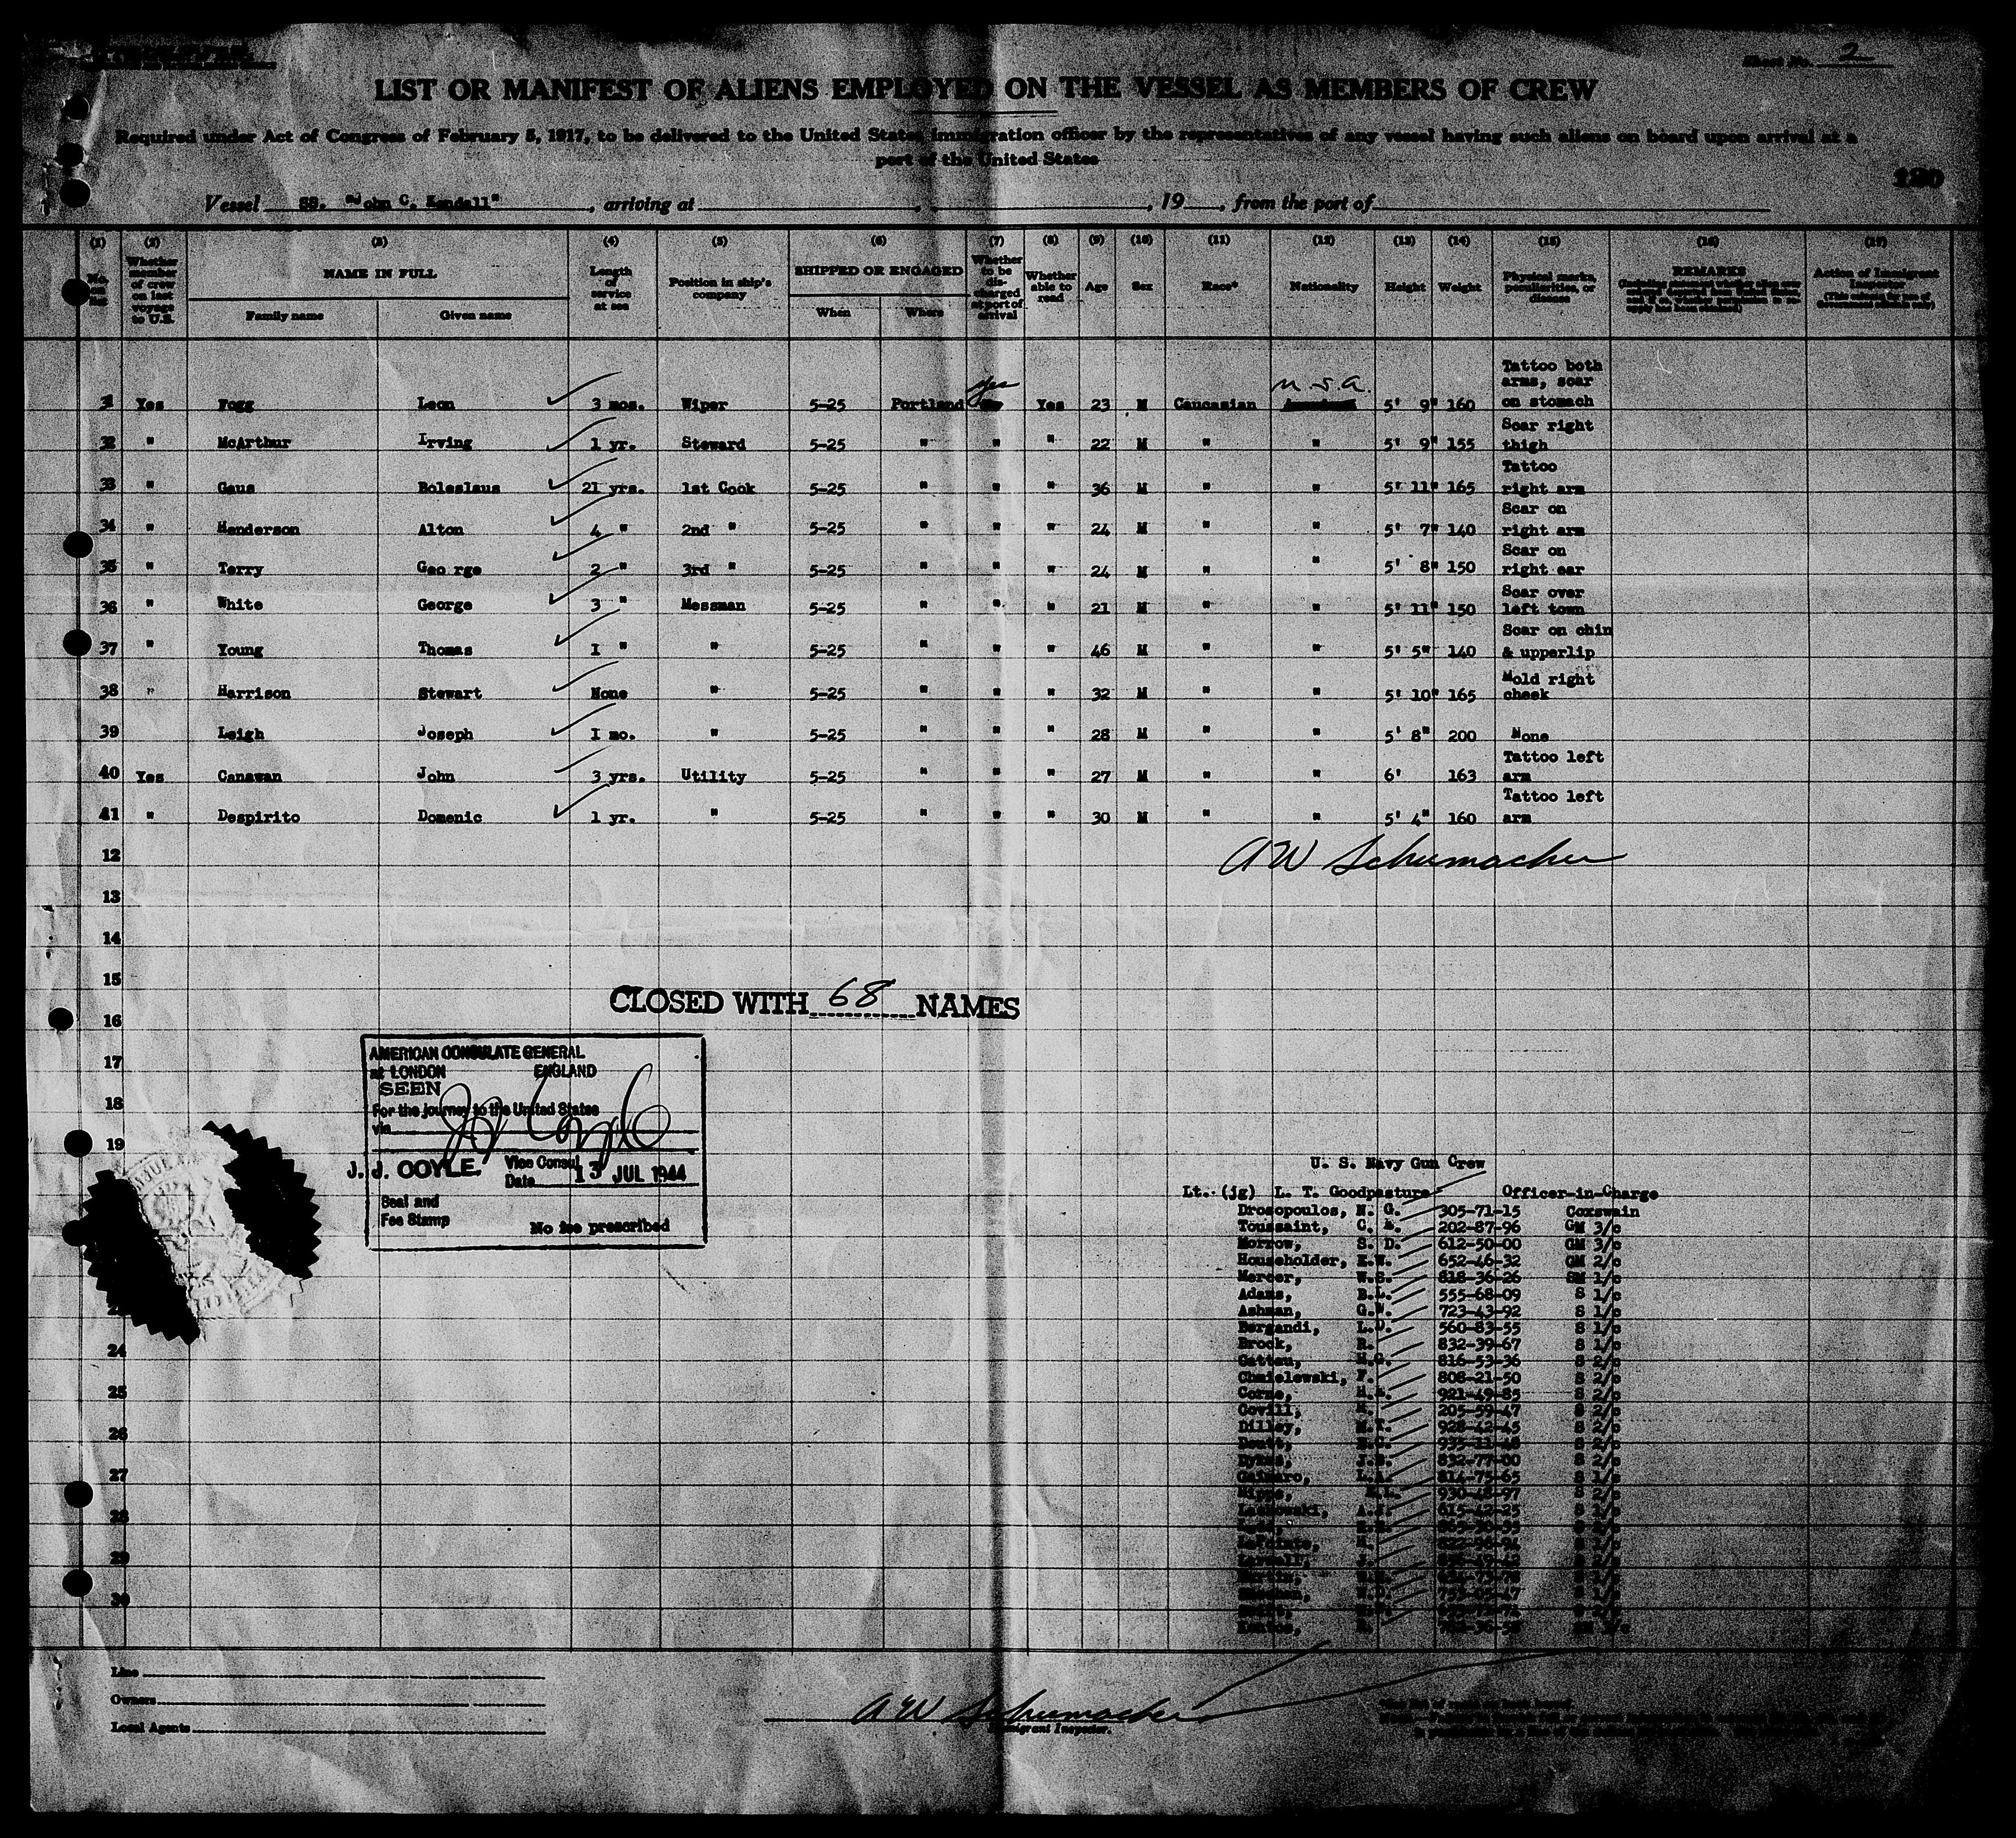 Sheet No. 2
LIST OR MANIFEST OF ALIENS EMPLOYED ON THE VESSEL AS MEMBERS OF CREW
Required under Act of Congress of February 5, 1917, to be delivered to the United States immigration officer by the representatives of any vessel having such aliens on board upon arrival at a
port of the United States
120
Vessel SS. "John C. Kendall" , arriving at , , 19 , from the port of
(1) (2) (3) (4) (5) (6) (7) (8) (9) (10) (11) (12) (13) (14) (15) (16) (17)
No. on list Whether member of crew on last voyage to U.S. NAME IN FULL Family name Given name Length of service at sea Position in ship's company SHIPPED OR ENGAGED When Where Whether to be discharged at port of arrival Whether able to read Age Sex Race* Nationality Height Weight Physical marks, peculiarities, or disease REMARKS Action of Immigrant Inspector
31 Yes Fogg Leon 3 mos. Wiper 5-25 Portland yes Yes 23 M Caucasian U.S.A. 5' 9" 160 Tattoo both arms, scar on stomach
32 " McArthur Irving 1 yr. Steward 5-25 " " " 22 M " " 5' 9" 155 Scar right thigh
33 " Gaus Boleslaus 21 yrs. 1st Cook 5-25 " " " 36 M " " 5' 11" 165 Tattoo right arm
34 " Henderson Alton 4 " 2nd " 5-25 " " " 24 M " " 5' 7" 140 Scar on right arm
35 " Terry Geo rge 2 " 3rd " 5-25 " " " 24 M " " 5' 8" 150 Scar on right ear
36 " White George 3 " Messman 5-25 " " " 21 M " " 5' 11" 150 Scar over left town
37 " Young Thomas I " " 5-25 " " " 46 M " " 5' 5" 140 Scar on chin & upperlip
38 " Harrison Stewart None " 5-25 " " " 32 M " " 5' 10" 165 Mold right cheek
39 Leigh Joseph I mo. " 5-25 " " " 28 M " " 5' 8" 200 None
40 Yes Canavan John 3 yrs. Utility 5-25 " " " 27 M " " 6' 163 Tattoo left arm
41 " Despirito Domenic 1 yr. " 5-25 " " " 30 M " " 5' 4" 160 Tattoo left arm
12
AW Schumacher
13
14
15
CLOSED WITH 68 NAMES
16
AMERICAN CONSULATE GENERAL
at LONDON ENGLAND
SEEN
17
For the journey to the United States
via
18
19
J. J. COYLE. Vice Consul
Date 13 JUL 1944
Seal and
Fee Stamp No fee prescribed
U. S. Navy Gun Crew
Lt. (jg) L. T. Goodpasture Officer-in-Charge
Drosopoulos, N. G. 305-71-15 Coxswain
Toussaint, C. 202-87-96 GM 3/c
Morrow, S. D. 612-50-00 GM 3/c
Householder, E.W. 652-46-32 GM 2/c
Mercer, W.S. 818-36-26 SM 1/c
Adams, B.L. 555-68-09 S 1/c
Ashman, G.W. 723-43-92 S 1/c
Bergandi, L.D. 560-83-55 S 1/c
Brock, R. 832-39-67 S 1/c
Cattau, H.G. 816-53-36 S 2/c
Chmielewski, F. 808-21-50 S 2/c
Corne, 921-49-85 S 2/c
Covill, 205-59-47 S 2/c
Dilley, 928-42-45 S 2/c
S 2/c
Dykes, J.B. 832-77-00 S 2/c
Gaimaro, L.A. 814-75-65 S 1/c
Hipps, 930-48-97 S 2/c
24
25
26
27
28
29
30
Line
Owners
Local Agents
AW Schumacher
Immigrant Inspector.